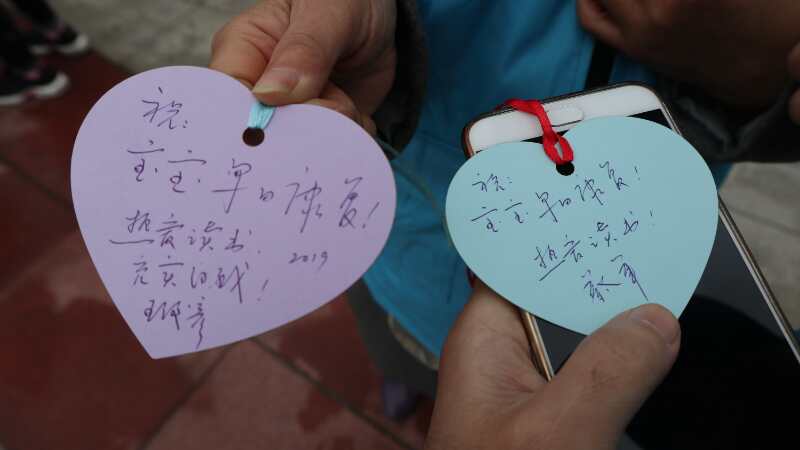 祝:
宝宝早日康复!
热爱读书.
充实自我! 2019
祝:
宝宝早日康复!
热爱读书!